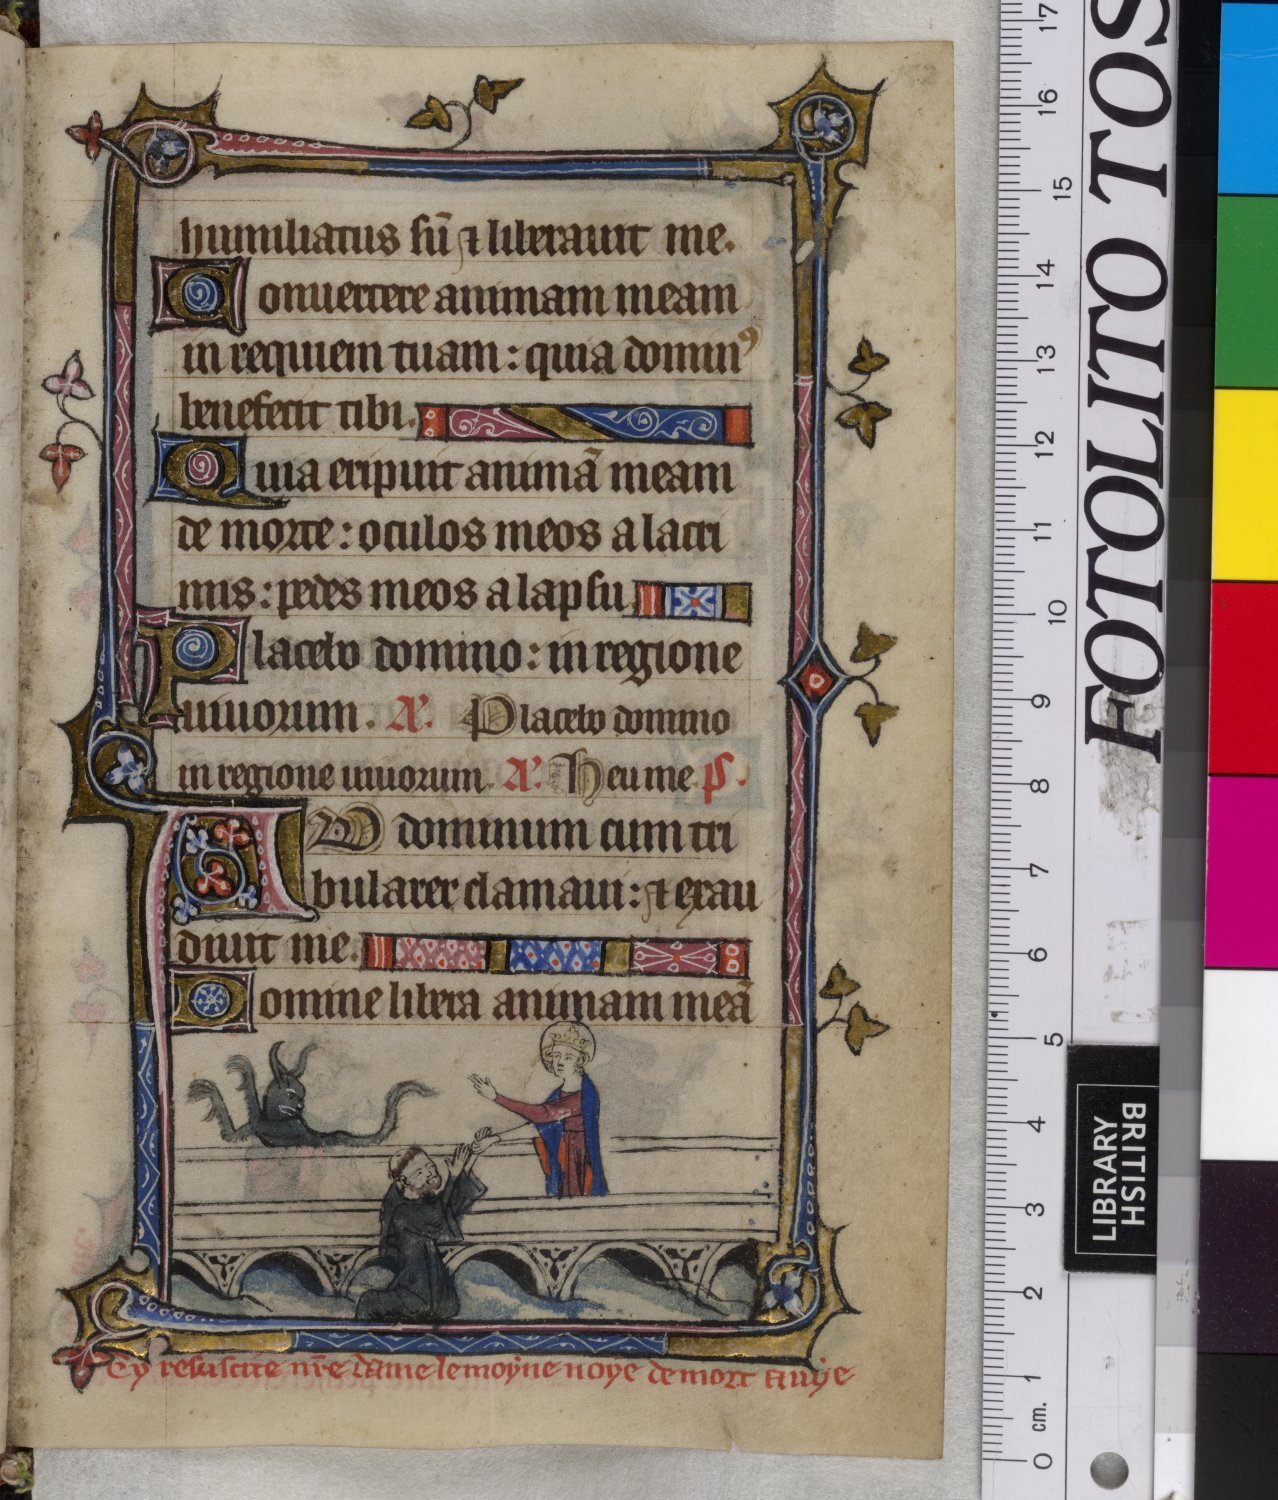 humiliatus sũ ⁊ liberauit me.
Conuertere animam meam
in requiem tuam: quia dominꝰ
benefecit tibi.
Quia eripuit animã meam
de morte: oculos meos a lacri
mis: pedes meos a lapsu.
Placebo domino: in regione
uiuorum. A͂. Placebo domino
in regione uiuorum. A͂. Heu me p̃s.
AD dominum cum tri
bularer clamaui: ⁊ exau
diuit me.
Domine libera animam meã
Cy resuscite nr̃e dame le moyne noye de mort a uye
FOTOLITO TOS
BRITISH
LIBRARY
17
16
15
14
13
12
11
10
9
8
7
6
5
4
3
2
1
cm.
0